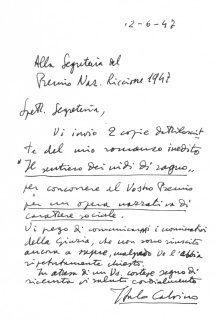 12-6-47
Alla Segreteria del
Premio Naz. Riccione 1947
Spett. Segreteria,
Vi invio 2 copie dattiloscrit-
te del mio romanzo inedito
"Il sentiero dei nidi di ragno",
per concorrere al Vostro Premio
per un'opera narrativa di
carattere sociale.
Vi prego di comunicarmi i nominativi
della Giuria, che non sono riuscito
ancora a sapere, malgrado ve l'abbia
ripetutamente chiesto.
In attesa di un Vs. cortese segno di
ricevuta vi saluto cordialmente
Italo Calvino